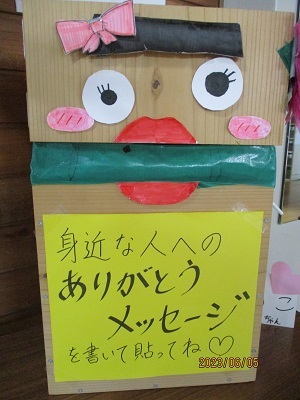 身近な人への
ありがとう
メッセージ
を書いて貼ってね♡
2023/06/05
こ
ちゃん